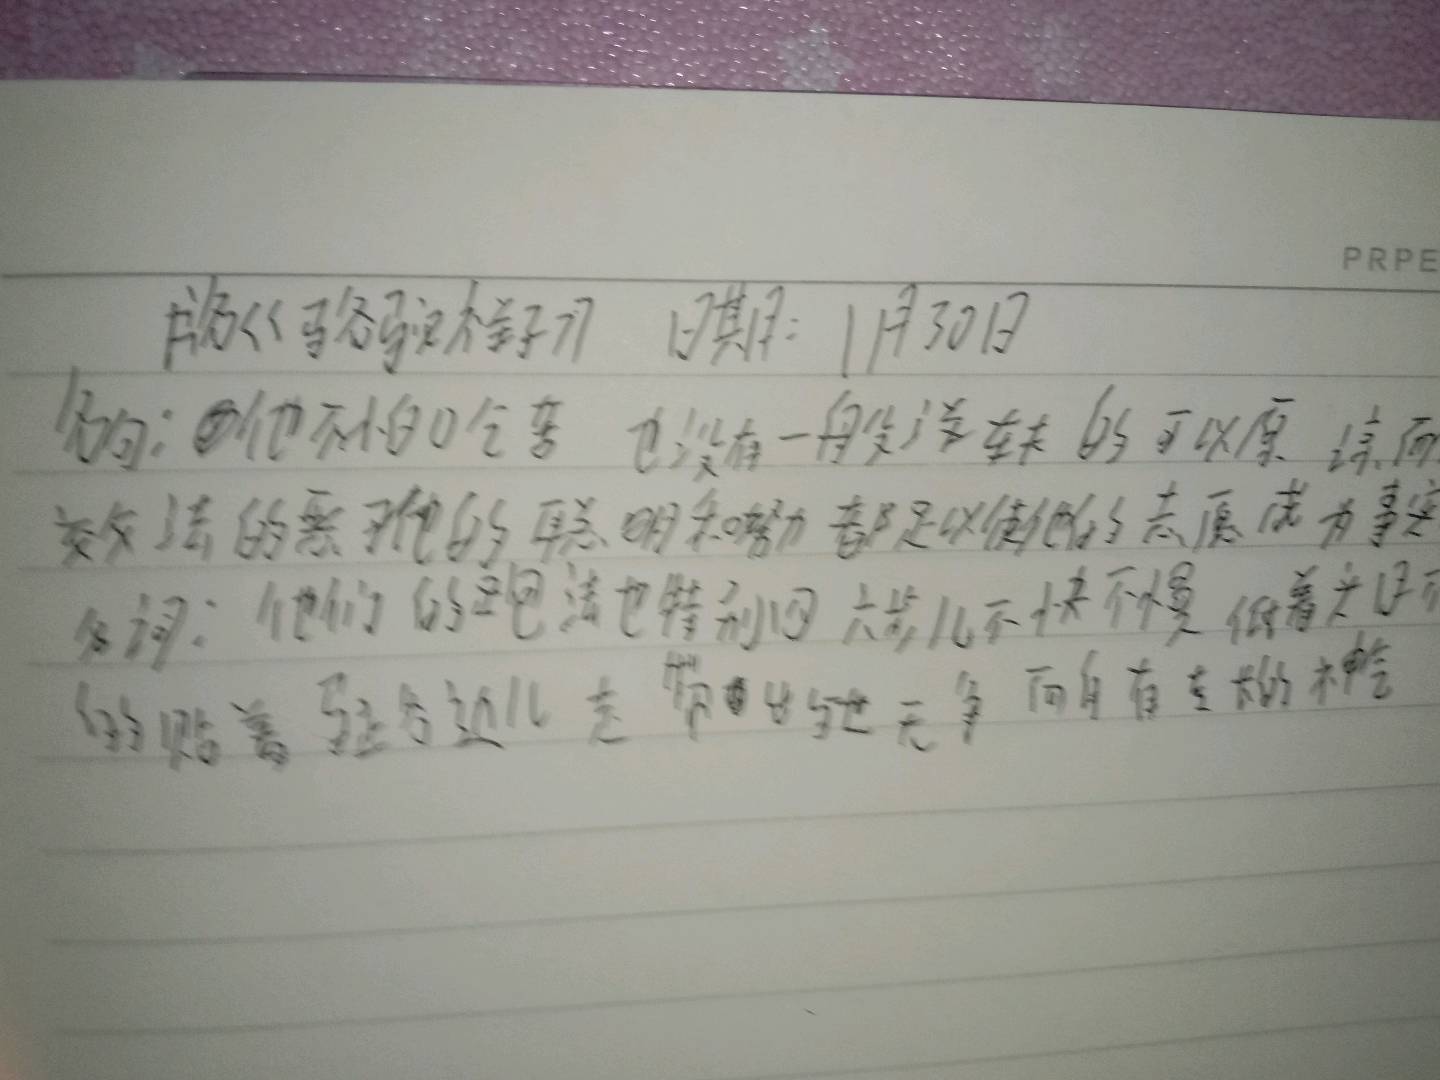 PRPE
《骆驼祥子》 日期：1月30日
句：他不怕吃苦 也没有一般洋车夫的可以原谅而
效法的恶 他的聪明和努力都足以使他的志愿成为事实
词：他们的跑法也特别 四六步儿不快不慢 低着头 目不
的贴着马路边儿走 带出与世无争 而自有专长的神气